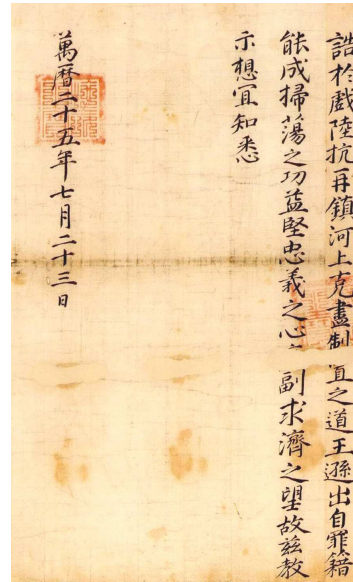 誥於戲陸抗再鎮河上克盡制之道王遜出自罪籍
能成掃蕩之功益堅忠義之心副求濟之望故茲教
示想宜知悉
萬曆二十五年七月二十三日